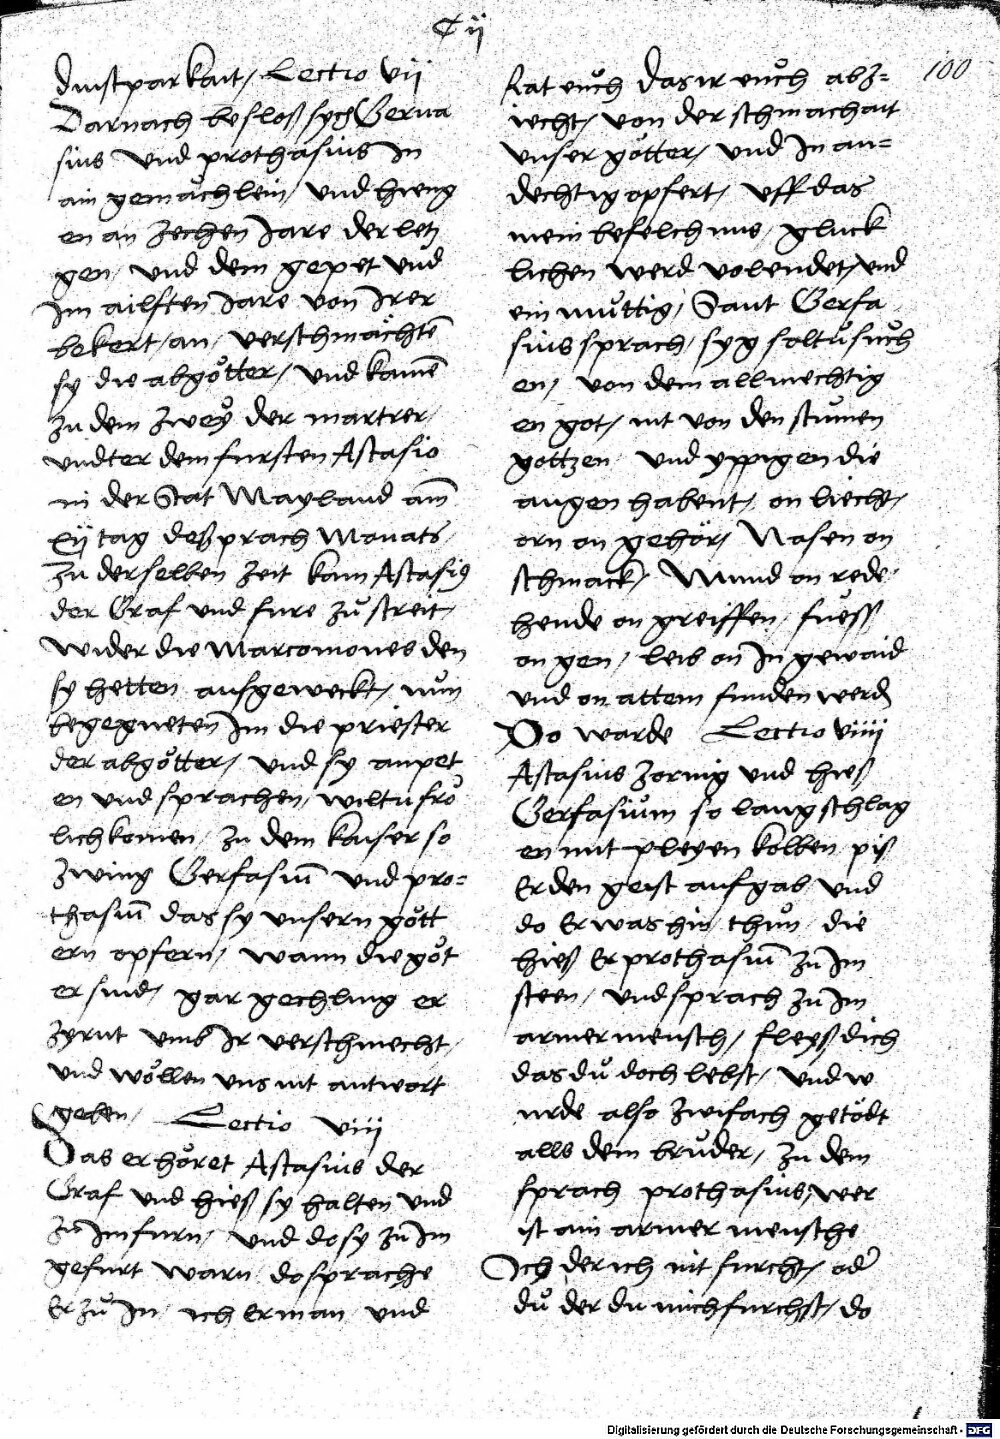 C ij
100
dinstparkait / Lectio vij
Darnach besloß sych Gerua
sius vnd prothasius In
ain gemächlein / vnd hieng
en an zechen Jare der letz
gen / vnd dem gepet vnd
Im ailften Jare von Irer
bekert / an / verschmächtē
sy die abgötter / vnd kamē
zu dem zweÿ der martrer /
vndter dem fursten Astasio
in der Stat Mayland am̄
xij tag deß prach Monats /
Zu derselben zeit kam Astasiꝰ
der Graf vnd fure zů streit /
wider die Marcomones den
sy hetten aufgeweckt / nun
begegneten Im die priester
der abgötter / vnd sy anpet
en vnd sprachen / wiltu frö
lich komen / zu dem kaiser so
zwing Gerfasiū vnd pro=
thasiū das sy vnsern gött
ern opfern / wann die göt
er sind / gar gechling er
zyrnt vmb Ir verschmecht /
vnd wöllen vns nit antwort
geben / Lectio viij
Das erhöret Astasius der
Graf vnd hieß sy halten vnd
zů Im furn / vnd do sy zů Im
gefurt warn do sprache
Er zů In / ich Erman vnd
Rat eůch das ir eůch abz=
iecht / von der schmachait
vnser götter / vnd In an=
dechtig opfert / vff das
mein befelchnus / gluck
lichen werd volendet / vnd
ein můttig / Sant Gerfa
sius sprach / syg soltu sůch
en / von dem allmechtig
en got / nit von den stumen
gottzen / vnd yppigen die
augen habent / on liecht /
orn on gehör / Nasen on
schmack / Mund on rede /
hende on greiffen / fuess
on gen / leib on Ingewaid
vnd on attem funden werdē
Do warde Lectio viiij
Astasius zornig vnd hieß
Gerfasium so lang schlag
en mit pleyen kolben piß
Er den geist aufgab vnd
do Er was hin thun / die
hieß Er prothasiū zu Im
steen / vnd sprach zů Im
armer mensch / fleyß dich
das dů doch lebst / vnd w
urde also zwifach getödt
alls dem brůder / zu dem
sprach prothasius / wer
ist ain armer mensche
Ich der ich nit furcht / od̓
dů der du mich furchst / do
Digitalisierung gefördert durch die Deutsche Forschungsgemeinschaft - DFG